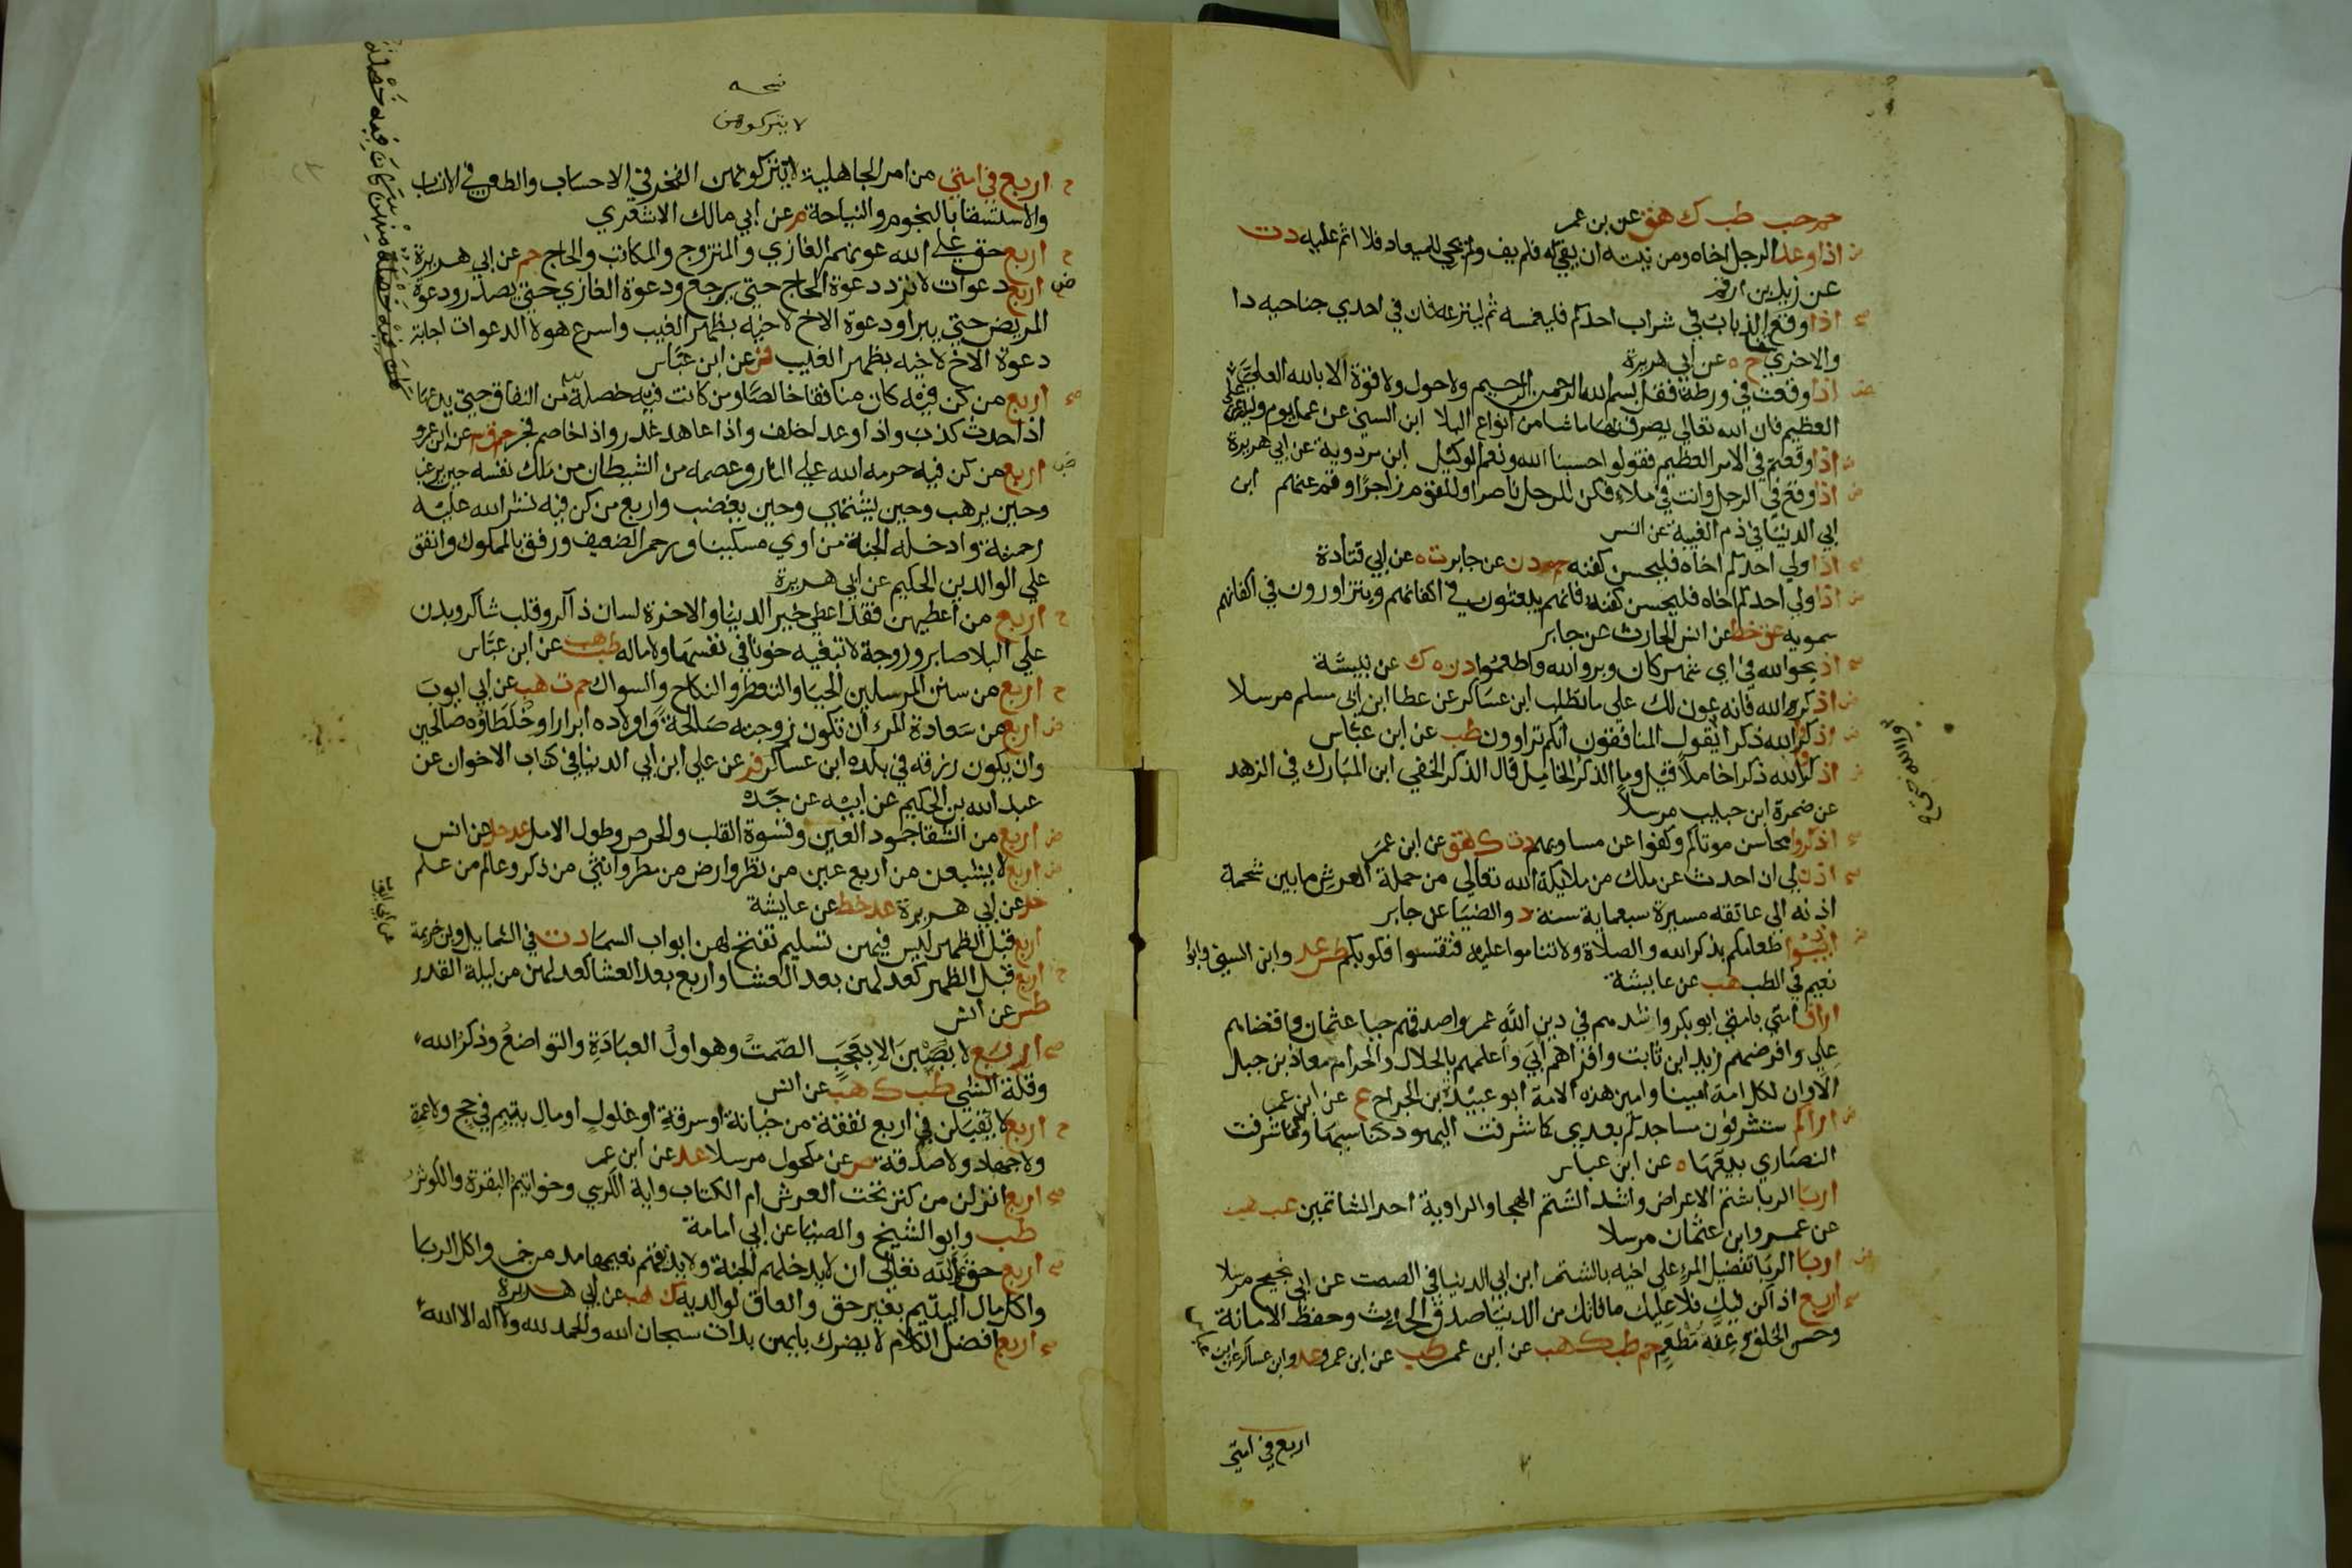 حم حب طب ك هق عن بن عمر
اذا وعد الرجل اخاه ومن نيته ان يفي له فلم يف ولم يجي للميعاد فلا اثم عليه د ت
عن زيد بن ارقم
اذا وقع الذباب في شراب احدكم فليغمسه ثم لينزعه فان في احدي جناحيه دا
والاخري شفا خ ه عن ابي هريرة
اذا وقعت في ورطة فقل بسم الله الرحمن الرحيم ولا حول ولا قوة الا بالله العلي
العظيم فان الله تعالي يصرف بها ما شا من انواع البلا ابن السني في عمل يوم وليلة عن علي
اذا وقعتم في الامر العظيم فقولوا حسبنا الله ونعم الوكيل ابن مردوية عن ابي هريرة
اذا وقع في الرجل وانت في ملاء فكن للرجل ناصرا وللقوم زاجرا وقم عنهم ابن
ابي الدنيا في ذم الغيبة عن انس
اذا ولي احدكم اخاه فليحسن كفنه حم د ن عن جابر ت ه عن ابي قتادة
اذا ولي احدكم اخاه فليحسن كفنه فانهم يبعثون في اكفانهم ويتزاورون في اكفانهم
سمويه عق خط عن انس الحارث عن جابر
اذبحوا لله في اي شهر كان وبروا لله واطعموا د ن ه ك عن نبيشة
اذكر الله فانه عون لك علي ما تطلب ابن عساكر عن عطا ابن ابي مسلم مرسلا
اذكروا الله ذكرا يقول المنافقون انكم تراوون طب عن ابن عباس
اذكروا الله ذكرا خاملا قيل وما الذكر الخامل قال الذكر الخفي ابن المبارك في الزهد
عن ضمرة ابن حبيب مرسلا
اذكروا محاسن موتاكم وكفوا عن مساويهم د ت ك هق عن ابن عمر
اذن لي ان احدث عن ملك من ملايكة الله تعالي من حملة العرش ما بين شحمة
اذنه الي عاتقه مسيرة سبعماية سنة د والضيا عن جابر
اذيبوا طعامكم بذكر الله والصلاة ولا تناموا عليه فتقسوا قلوبكم طس عد وابن السني وابو
نعيم في الطب هب عن عايشة
اراف امتي بامتي ابو بكر واشدهم في دين الله عمر واصدقهم حيا عثمان واقضاهم
علي وافرضهم زيد ابن ثابت واقراهم ابي واعلمهم بالحلال والحرام معاذ بن جبل
الا وان لكل امة امينا وامين هذه الامة ابو عبيدة بن الجراح ع عن ابن عمر
اراكم ستشرفون مساجدكم بعدي كما شرفت اليهود كنايسها وكما شرفت
النصاري بيعها ه عن ابن عباس
اربا الربا شتم الاعراض واشد الشتم الهجا والراوية احد الشاتمين عب هب
عن عمرو ابن عثمان مرسلا
اربا الربا تفضيل المرء علي اخيه بالشتم ابن ابي الدنيا في الصمت عن ابي نجيح مرسلا
اربع اذا كن فيك فلا عليك ما فاتك من الدنيا صدق الحديث وحفظ الامانة
وحسن الخلق وعفة مطعم حم طب ك هب عن ابن عمر طب عن ابن عمرو عد وابن عساكر عن ابن عباس
اربع في امتي
نسخه
لا يتركوهن
اربع في امتي من امر الجاهلية لا يتركونهن الفخر في الاحساب والطعن في الانساب
والاستسقا بالنجوم والنياحة م عن ابي مالك الاشعري
اربع حق علي الله عونهم الغازي والمتزوج والمكاتب والحاج حم عن ابي هريرة
اربع دعوات لا ترد دعوة الحاج حتي يرجع ودعوة الغازي حتي يصدر ودعوة
المريض حتي يبرا ودعوة الاخ لاخيه بظهر الغيب واسرع هولا الدعوات اجابة
دعوة الاخ لاخيه بظهر الغيب فر عن ابن عباس
اربع من كن فيه كان منافقا خالصا ومن كانت فيه خصلة من النفاق حتي يدعها
اذا حدث كذب واذا وعد اخلف واذا عاهد غدر واذا خاصم فجر حم ق عن ابن عمرو
اربع من كن فيه حرمه الله علي النار وعصمه من الشيطان من ملك نفسه حين يرغب
وحين يرهب وحين يشتهي وحين يغضب واربع من كن فيه نشر الله عليه
رحمته وادخله الجنة من اوي مسكينا ورحم الضعيف ورفق بالمملوك وانفق
علي الوالدين الحكيم عن ابي هريرة
اربع من اعطيهن فقد اعطي خير الدنيا والاخرة لسان ذاكر وقلب شاكر وبدن
علي البلا صابر وزوجة لا تبغيه خونا في نفسها ولا ماله طب هب عن ابن عباس
اربع من سنن المرسلين الحيا والتعطر والنكاح والسواك حم ت هب عن ابي ايوب
اربع من سعادة المرء ان تكون زوجته صالحة واولاده ابرارا وخلطاوه صالحين
وان يكون رزقه في بلده ابن عساكر فر عن علي ابن ابي الدنيا في كتاب الاخوان عن
عبد الله بن الحكيم عن ابيه عن جده
اربع من الشقا جمود العين وقسوة القلب والحرص وطول الامل عد حل عن انس
اربع لا يشبعن من اربع عين من نظر وارض من مطر وانثي من ذكر وعالم من علم
حل عن ابي هريرة عد خط عن عايشة
اربع قبل الظهر ليس فيهن تسليم تفتح لهن ابواب السما د ت في الشمايل وبن خزيمة
عن ابي ايوب
اربع قبل الظهر كعدلهن بعد العشا واربع بعد العشا كعدلهن من ليلة القدر
طس عن انس
اربع لا يصبن الا بعجب الصمت وهو اول العبادة والتواضع وذكر الله
وقلة الشي طب ك هب عن انس
اربع لا يقبلن في اربع نفقة من خيانة او سرقة او غلول او مال يتيم في حج ولا عمرة
ولا جهاد ولا صدقة ص عن مكحول مرسلا عد عن ابن عمر
اربع انزلن من كنز تحت العرش ام الكتاب واية الكرسي وخواتيم البقرة والكوثر
طب وابو الشيخ والضيا عن ابي امامة
اربع حق علي الله تعالي ان لا يدخلهم الجنة ولا يذيقهم نعيمها مدمن خمر واكل الربا
واكل مال اليتيم بغير حق والعاق لوالديه ك هب عن ابي هريرة
اربع افضل الكلام لا يضرك بايهن بدات سبحان الله والحمد لله ولا اله الا الله